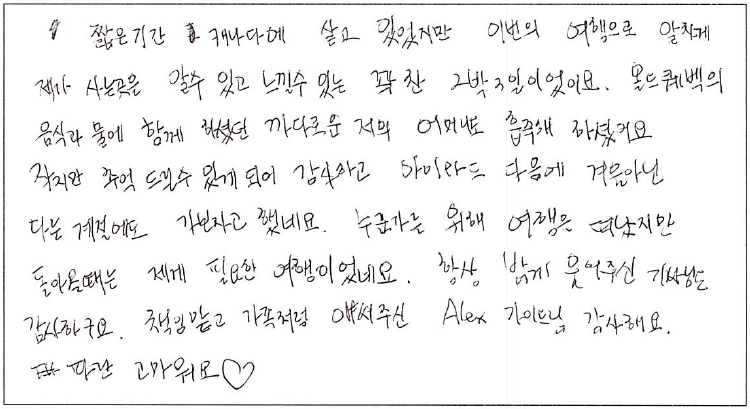 짧은기간 캐나다에 살고 있었지만 이번의 여행으로 알차게
제가 사는곳은 알수 있고 느낄수 있는 꽉 찬 2박3일이었어요. 올드퀘벡의
음식과 물에 함께 하셨던 까다로운 저의 어머니도 흡족해 하셨구요
작지만 추억 드릴수 있게 되어 감사하고 아이라도 다음에 겨울아닌
다른 계절에도 가보자고 했네요. 누군가를 위해 여행은 떠났지만
돌아올때는 제게 필요한 여행이었네요. 항상 밝게 웃어주신 기사님도
감사하구요. 책임맡고 가족처럼 애써주신 Alex 가이드님 감사해요.
고마워요♡